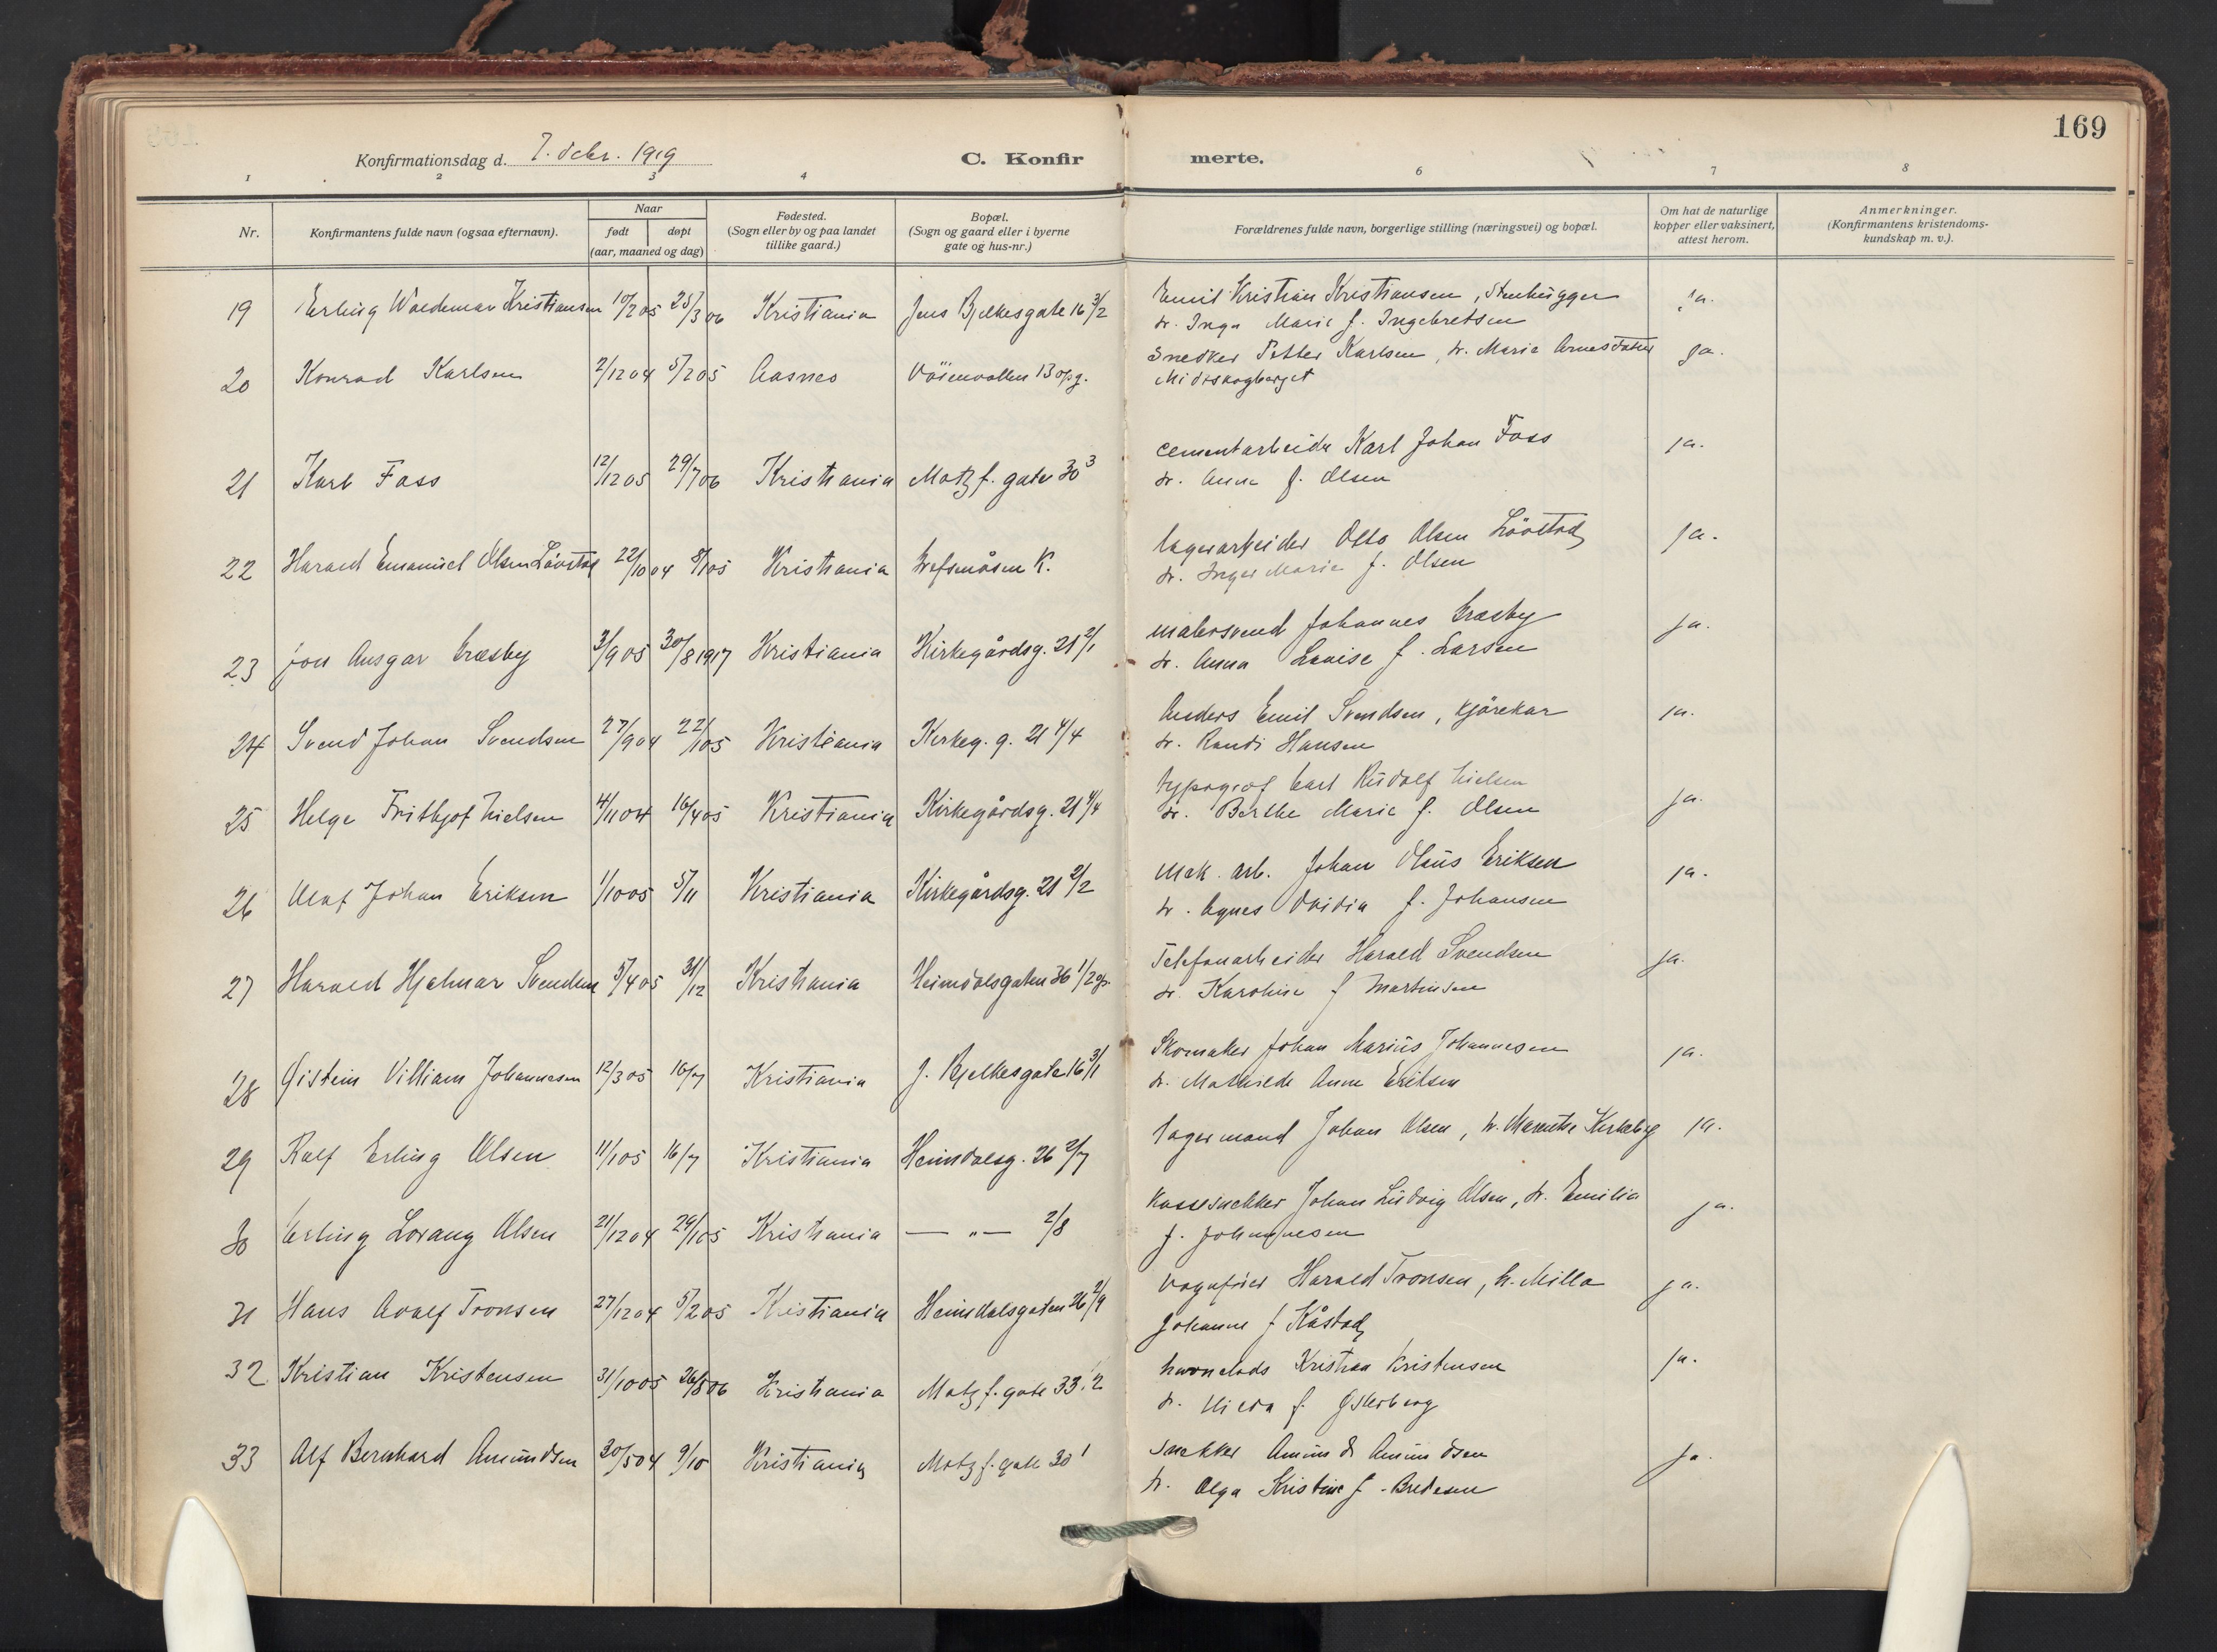 169
Konfirmationsdag d. 7. debr. 1919
C. Konfirmerte.
1 2 3 4 6 7 8
Nr.
Konfirmantens fulde navn (ogsaa efternavn).
Naar
født døpt
(aar, maaned og dag)
Fødested.
(Sogn eller by og paa landet
tillike gaard.)
Bopæl.
(Sogn og gaard eller i byerne
gate og hus-nr.)
Forældrenes fulde navn, borgerlige stilling (næringsvei) og bopæl.
Om hat de naturlige
kopper eller vaksinert,
attest herom.
Anmerkninger.
(Konfirmantens kristendoms-
kundskap m. v.).
19 Erling Waldemar Kristiansen 10/2 05 25/3 06 Kristiania Jens Bjelkesgate 16 3/2 Emil Kristian Kristiansen, Stenhugger ja.
h. Inga Marie f. Ingebretsen
20 Konrad Karlsen 2/12 04 5/2 05 Aasnes Vöienvolden 13 opg. Snedker Petter Karlsen, h. Marie Arnesdatter ja.
Midtskogberget
21 Karl Foss 12/12 05 29/7 06 Kristiania Motzf. gate 30 3 cementarbeider Karl Johan Foss ja.
h. Anna f. Olsen
22 Harald Emanuel Olsen Lövstad 22/10 04 8/1 05 Kristiania Grefsenåsen K. lagerarbeider Otto Olsen Lövstad ja.
h. Inger Marie f. Olsen
23 Jon Ansgar Græsby 3/9 05 30/8 1917 Kristiania Kirkegårdsg. 21 2/1 malersvend Johannes Græsby ja.
h. Anna Lovise f. Larsen
24 Svend Johan Svendsen 27/9 04 22/1 05 Kristiania Kirkeg. g. 21 4/4 Anders Emil Svendsen, kjörekar ja.
h. Randi Hansen
25 Helge Frithjof Nielsen 4/11 04 16/4 05 Kristiania Kirkegårdsg. 21 4/4 typograf Carl Rudolf Nielsen ja.
h. Berthe Marie f. Olsen
26 Olaf Johan Eriksen 1/10 05 5/11 Kristiania Kirkegårdsg. 21 2/2 Mek. arb. Johan Olaus Eriksen ja.
h. Agnes Ovidia f. Johansen
27 Harald Hjalmar Svendsen 5/4 05 31/12 Kristiania Heimdalsgaten 36 1/2 op. Telefonarbeider Harald Svendsen ja.
h. Karoline f Martinsen
28 Øistein Villiam Johannesen 12/3 05 16/7 Kristiania J. Bjelkesgate 16 3/1 Skomaker Johan Marius Johannesen ja.
h. Mathilde Anne Eriksen
29 Ralf Erling Olsen 11/1 05 16/7 Kristiania Heimdalsg. 26 2/7 lagermand Johan Olsen, h. Marentse Kirkeby ja.
30 Erling Lorang Olsen 21/12 04 29/1 05 Kristiania — " — 2/8 Kassesnekker Johan Ludvig Olsen, h. Emilia ja.
f. Johannesen
31 Hans Adolf Tronsen 27/12 04 5/2 05 Kristiania Heimdalsgaten 26 2/9 Vognfører Harald Tronsen, h. Milla ja.
Johanne f Kåstad
32 Kristian Kristensen 31/10 05 26/8 06 Kristiania Motzf. gate 33. 1/2 havnelods Kristian Kristensen ja.
h. Hilda f. Østerberg
33 Alf Bernhard Amundsen 30/5 04 9/10 Kristiania Motzf. gate 30 1 Snekker Amund Amundsen ja.
h. Olga Kristine f. Bredesen